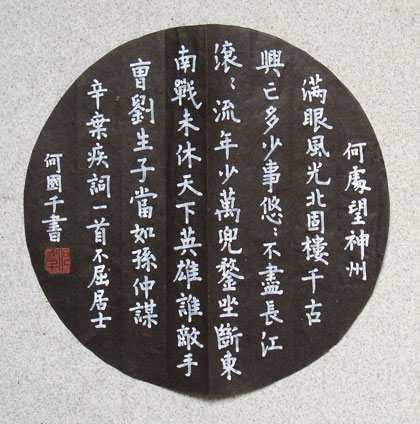 何處望神州
滿眼風光北固樓千古
興亡多少事悠〻不盡長江
滾〻流年少萬兜鍪坐斷東
南戰未休天下英雄誰敵手
曹劉生子當如孫仲謀
辛棄疾詞一首不屈居士
何國千書